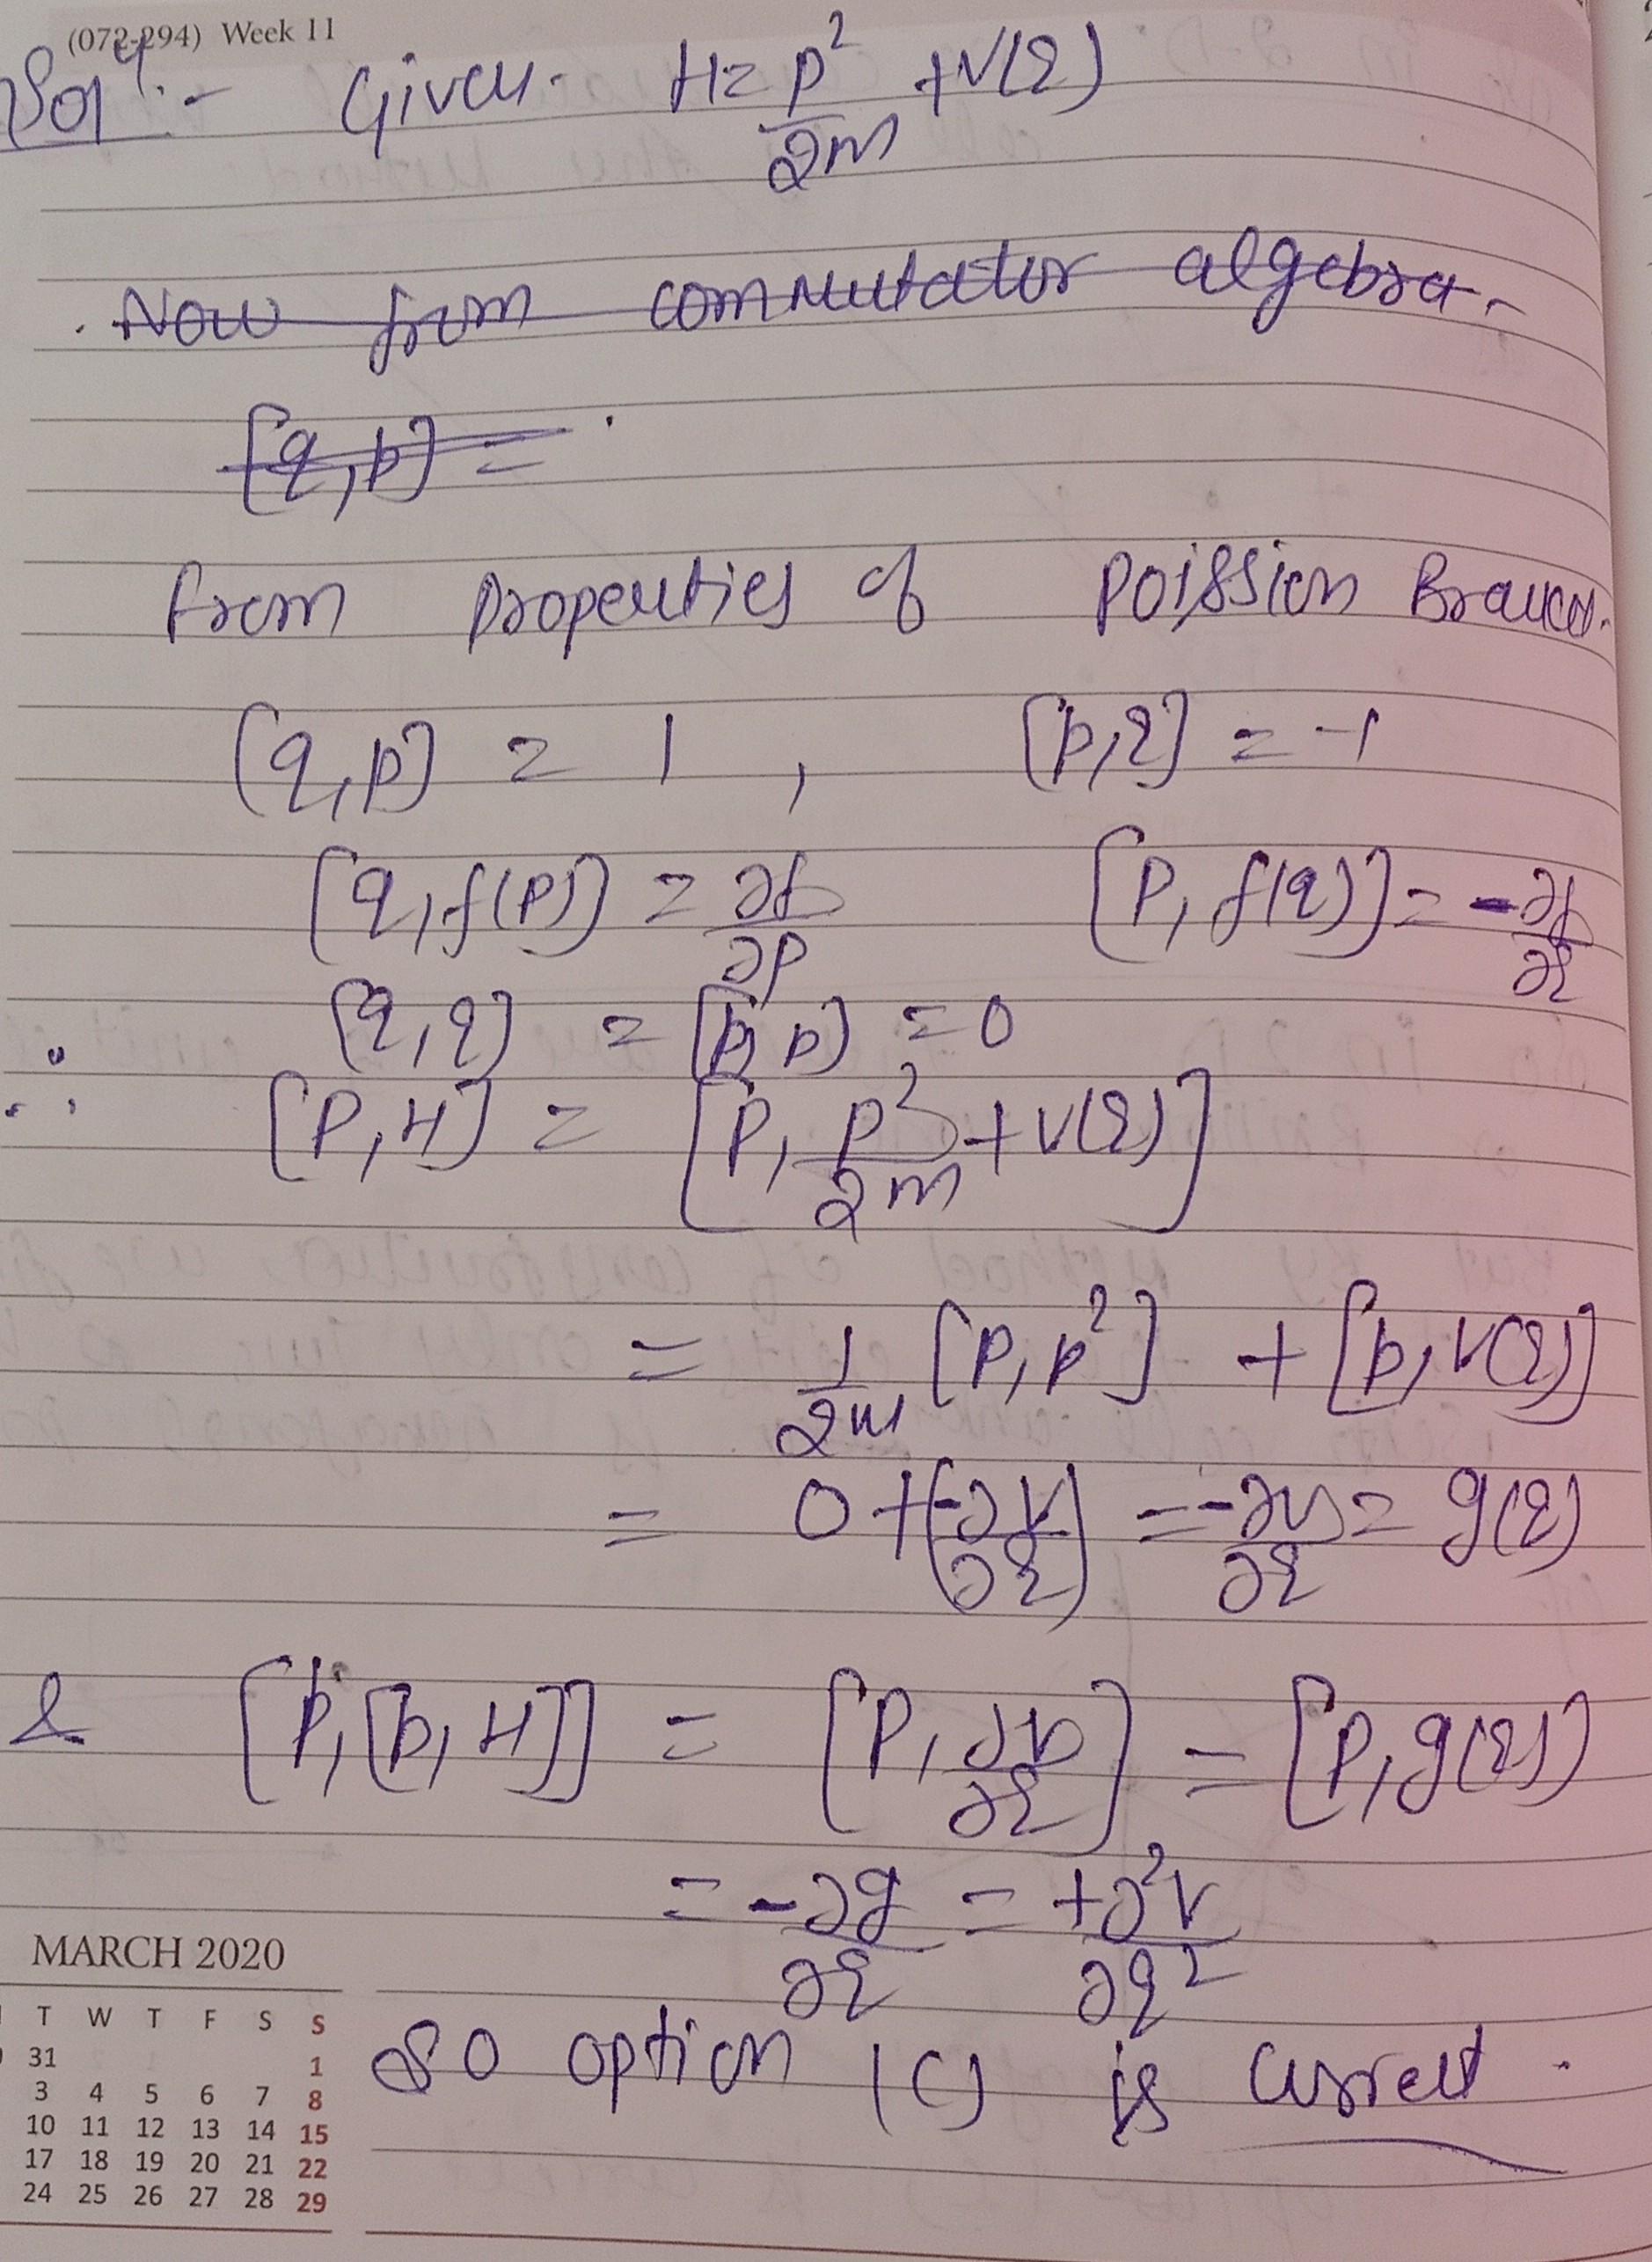 (072-294) Week 11
Solⁿ :- Given. H = p²/2m + V(q)
Now from commutator algebra.
[q,p] =
from properties of Poission Bracket.
[q,p] = 1 , [p,q] = -1
[q,f(p)] = ∂f/∂p [p, f(q)] = -∂f/∂q
[q,q] = [p,p] = 0
∴ [P,H] = [P, p²/2m + V(q)]
= 1/2m [P,p²] + [p,V(q)]
= 0 + (-∂V/∂q) = -∂V/∂q = g(q)
& [p,[p,H]] = [P, ∂V/∂q] = [P,g(q)]
= -∂g/∂q = +∂²V/∂q²
So option (C) is correct.
MARCH 2020
T W T F S S
31 1
3 4 5 6 7 8
10 11 12 13 14 15
17 18 19 20 21 22
24 25 26 27 28 29